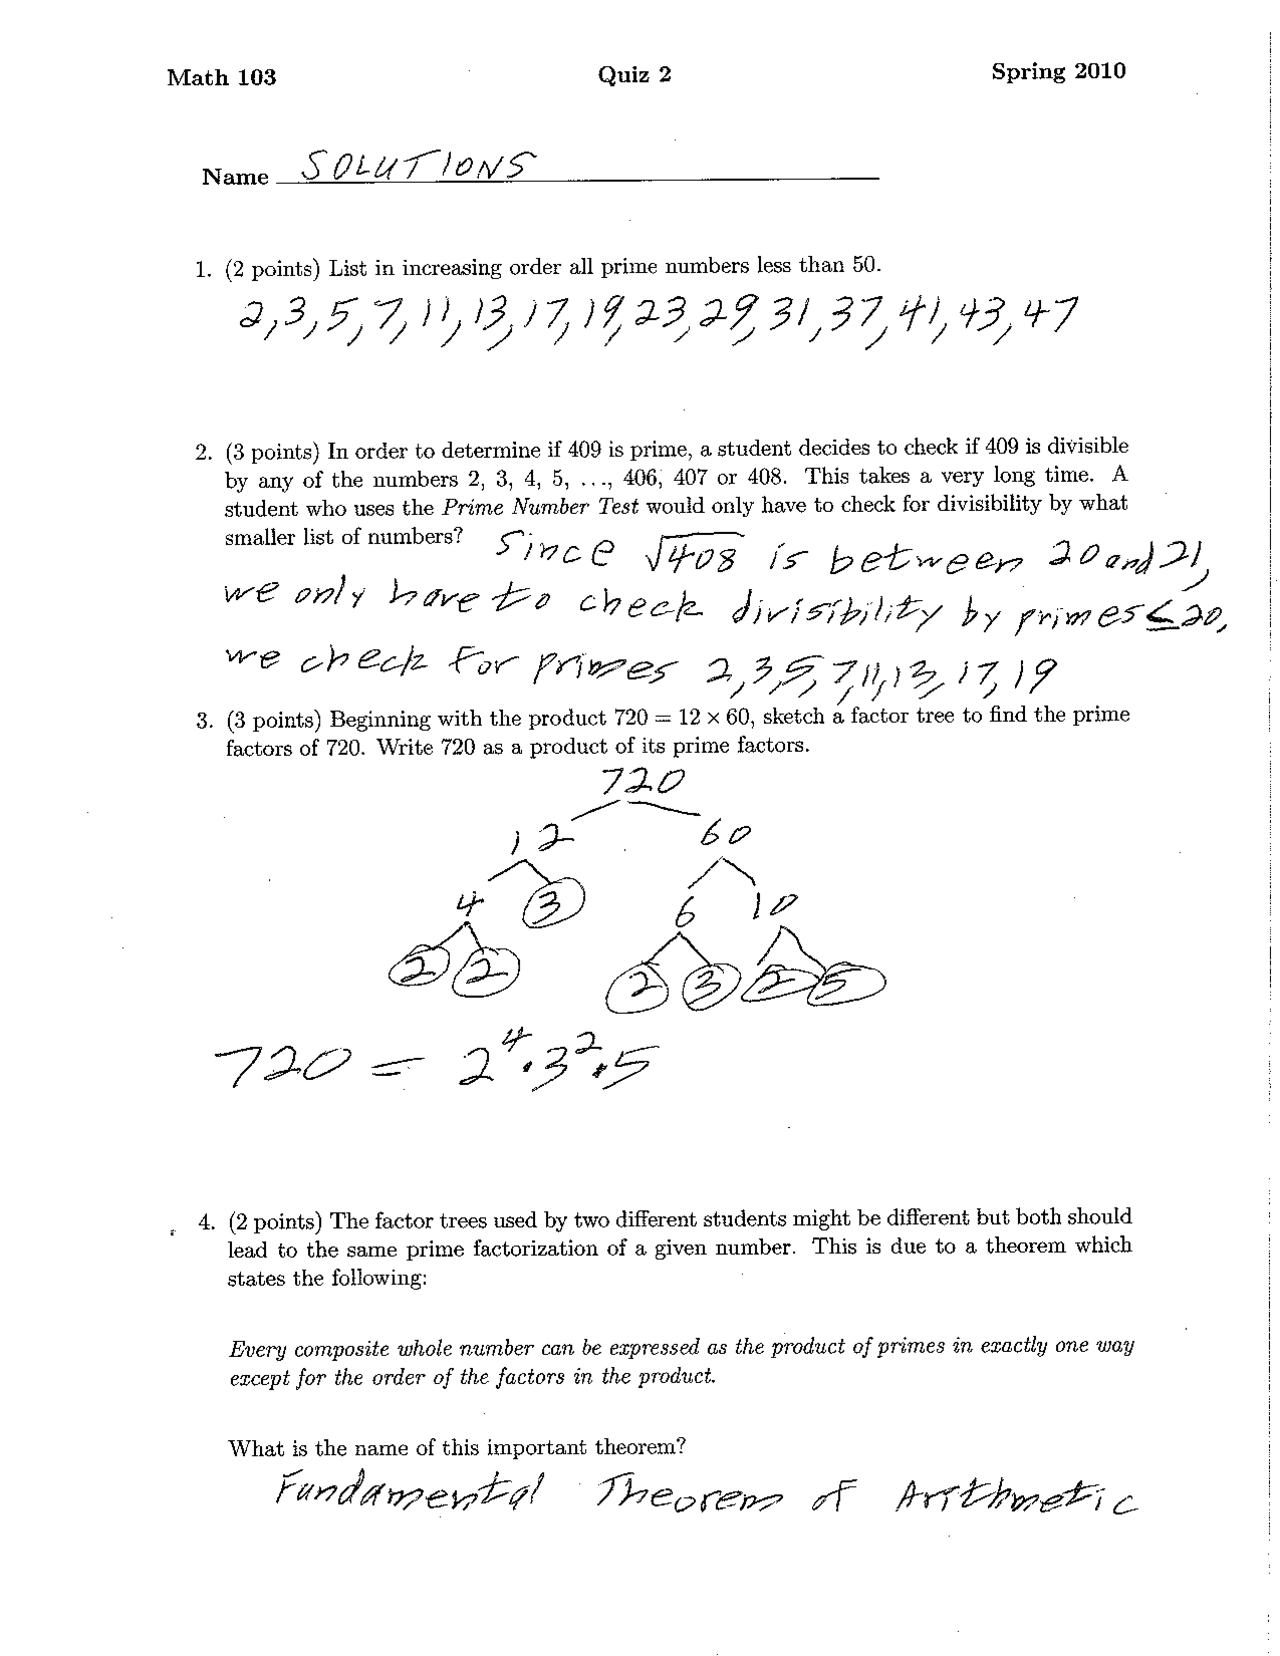 Math 103 Quiz 2 Spring 2010
Name SOLUTIONS
1. (2 points) List in increasing order all prime numbers less than 50.
2,3,5,7,11,13,17,19,23,29,31,37,41,43,47
2. (3 points) In order to determine if 409 is prime, a student decides to check if 409 is divisible
by any of the numbers 2, 3, 4, 5, ..., 406, 407 or 408. This takes a very long time. A
student who uses the Prime Number Test would only have to check for divisibility by what
smaller list of numbers? Since √408 is between 20 and 21,
we only have to check divisibility by primes ≤ 20,
we check for primes 2,3,5,7,11,13,17,19
3. (3 points) Beginning with the product 720 = 12 × 60, sketch a factor tree to find the prime
factors of 720. Write 720 as a product of its prime factors.
720
12 60
4 3 6 10
2 2 2 3 2 5
720 = 2⁴·3²·5
4. (2 points) The factor trees used by two different students might be different but both should
lead to the same prime factorization of a given number. This is due to a theorem which
states the following:
Every composite whole number can be expressed as the product of primes in exactly one way
except for the order of the factors in the product.
What is the name of this important theorem?
Fundamental Theorem of Arithmetic